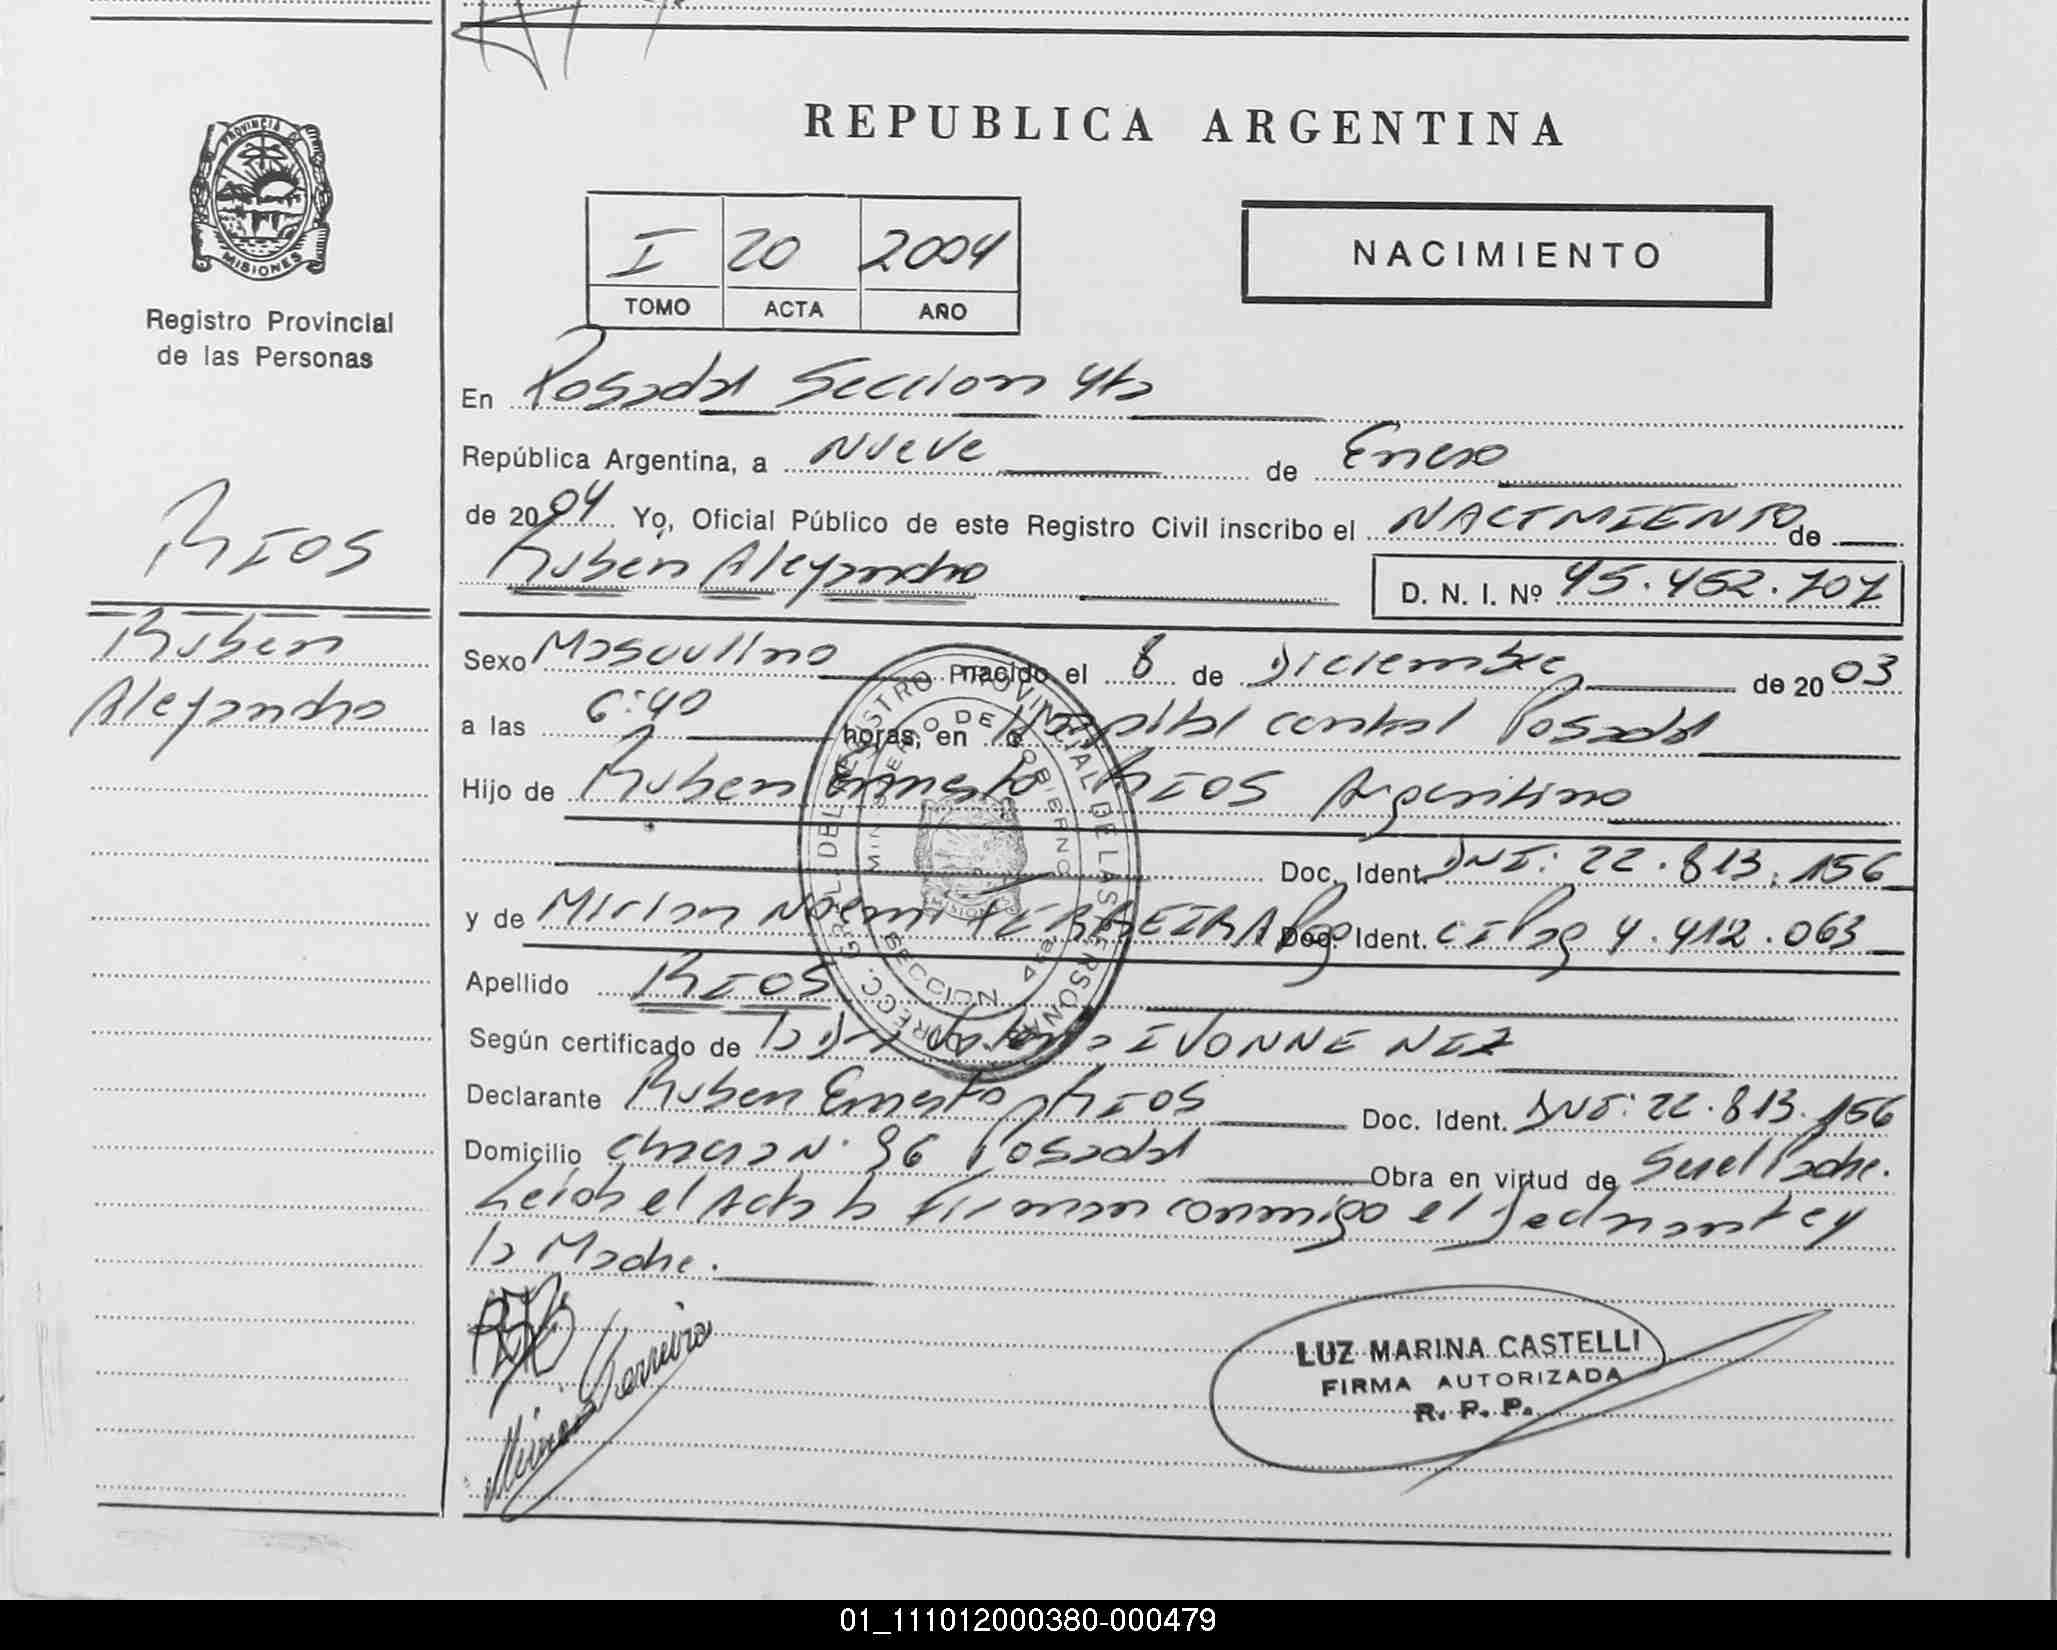 REPUBLICA ARGENTINA
PROVINCIA DE
MISIONES
Registro Provincial
de las Personas
I 20 2004
TOMO ACTA AÑO
NACIMIENTO
En Posadas Seccion 4ta
República Argentina, a Nueve de Enero
de 2004 Yo, Oficial Público de este Registro Civil inscribo el NACIMIENTO de
Ruben Alejandro D. N. I. Nº 45.452.707
RIOS
Ruben
Alejandro
Sexo Masculino nacido el 8 de Diciembre de 2003
a las 6:40 horas, en Hospital central Posadas
Hijo de Ruben Ernesto RIOS Argentino
Doc. Ident. DNI: 22.813.156
y de Mirian Noemi FERREIRA Doc. Ident. CIPag 4.412.063
Apellido RIOS
Según certificado de la Dra IVONNE NIZ
Declarante Ruben Ernesto RIOS Doc. Ident. DNI: 22.813.156
Domicilio Chacra N. 96 Posadas Obra en virtud de Ser el Padre.
Leida el Acta la Firman conmigo el y
la Madre.
DIRECC. GRAL. DEL REGISTRO PROVINCIAL DE LAS PERSONAS
MINISTERIO DE GOBIERNO
MISIONES
SECCION 4ta
Mirian Ferreira
LUZ MARINA CASTELLI
FIRMA AUTORIZADA
R. P. P.
01_111012000380-000479